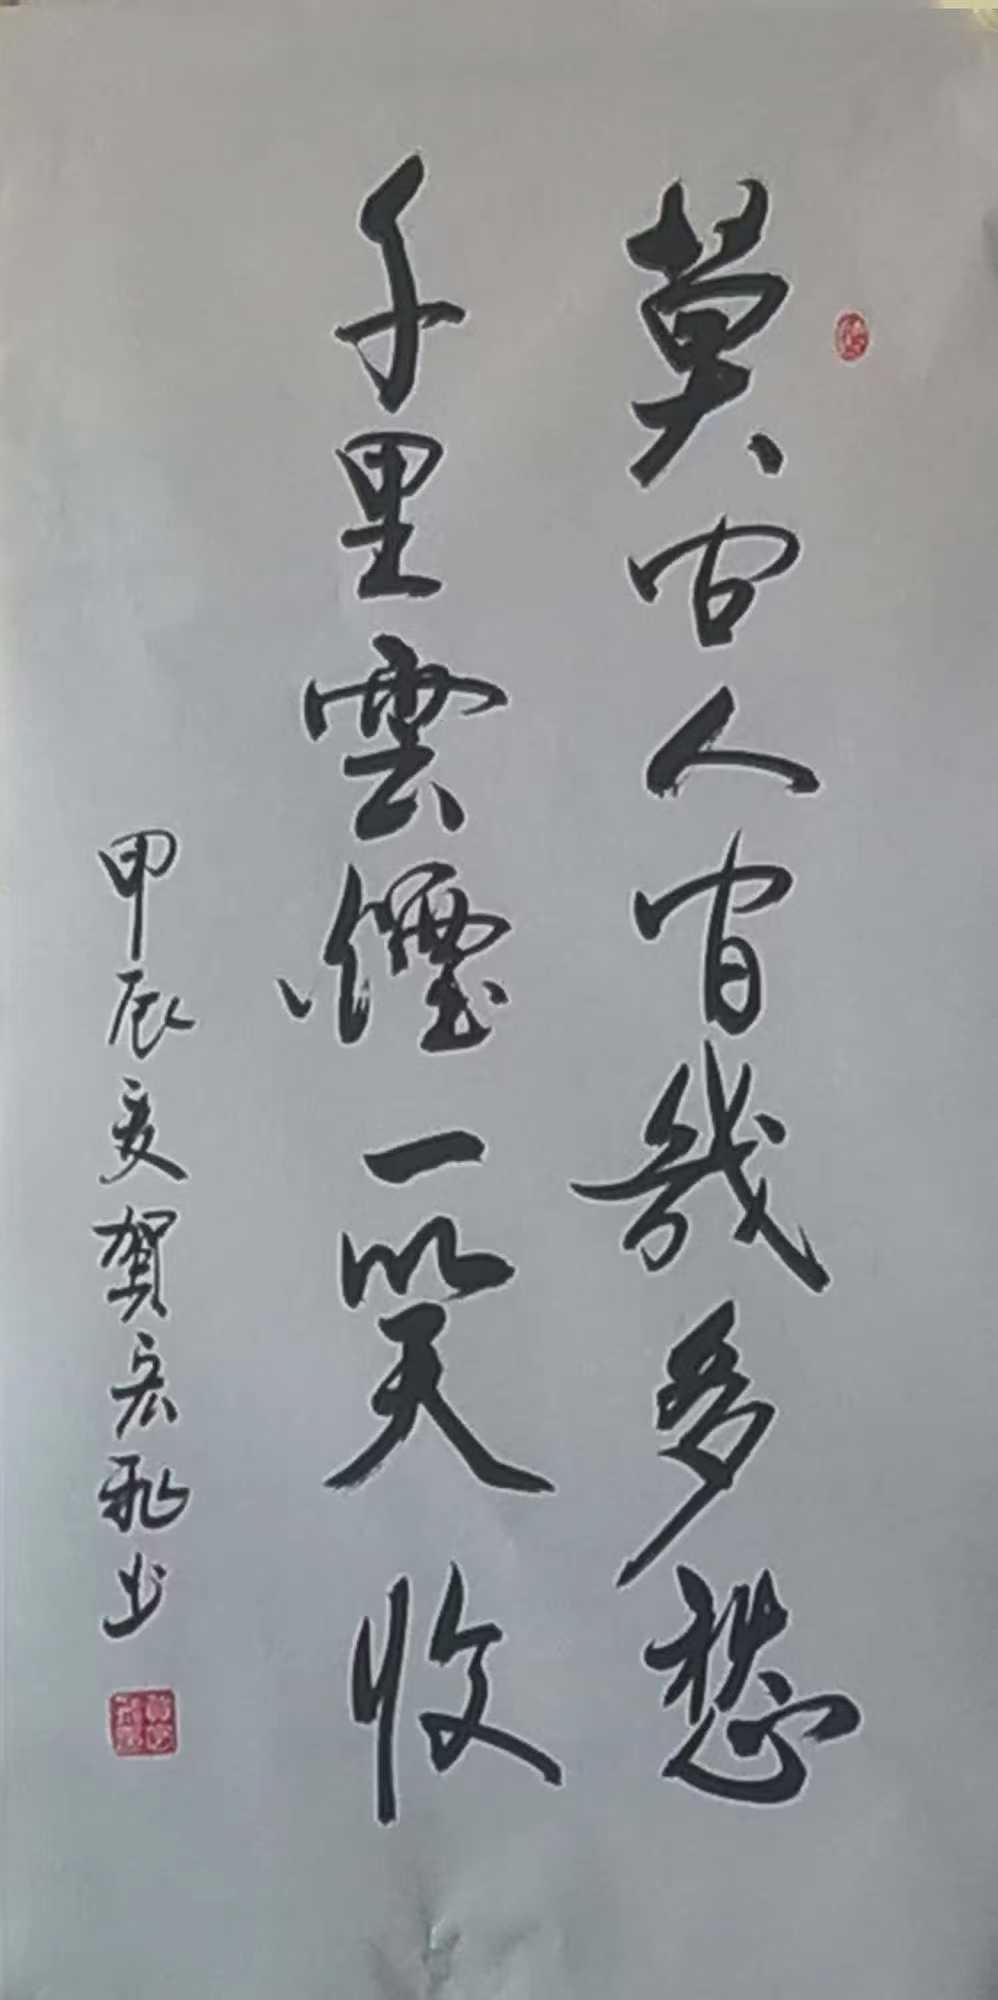 莫问人间几多愁
千里雲煙一笑收
甲辰夏贺宏飛书